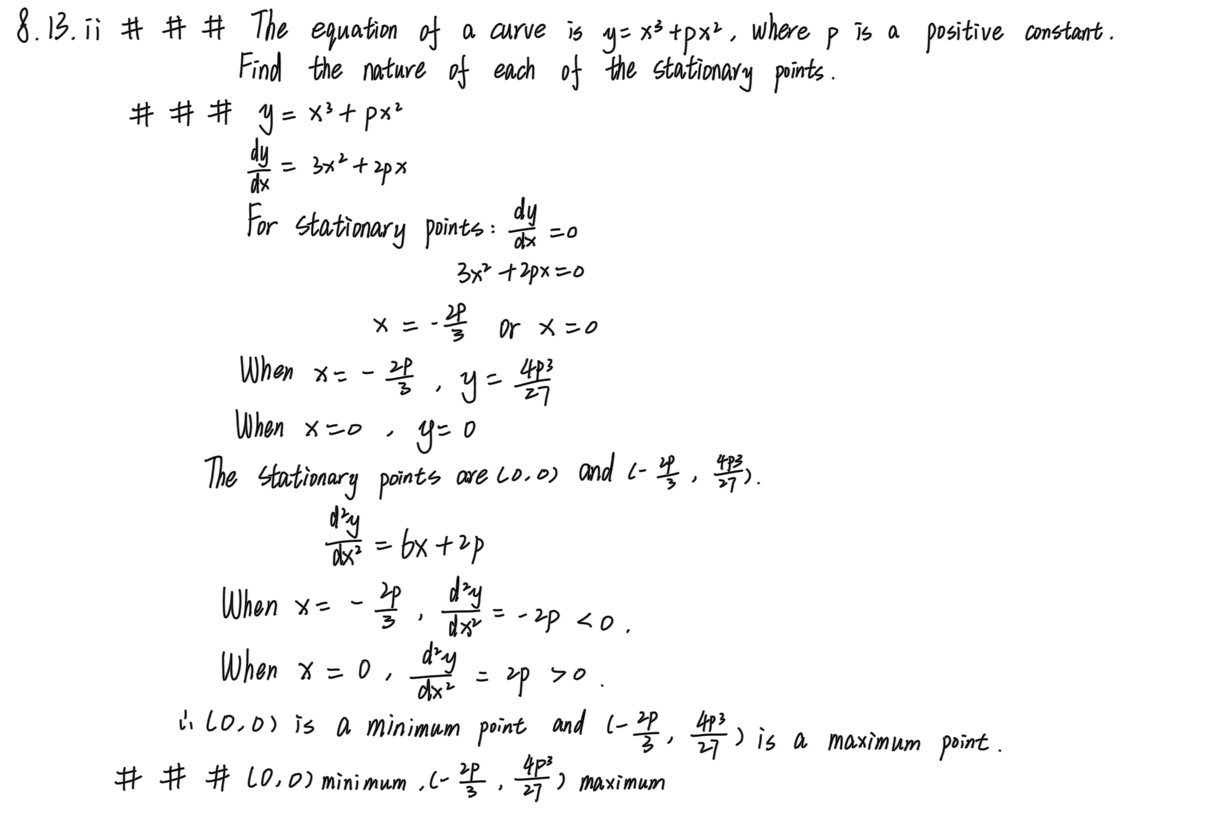 8.13.ii # # # The equation of a curve is y = x³ + px², where p is a positive constant.
Find the nature of each of the stationary points.
# # # y = x³ + px²
dy/dx = 3x² + 2px
For stationary points: dy/dx = 0
3x² + 2px = 0
x = -2p/3 or x = 0
When x = -2p/3, y = 4p³/27
When x = 0, y = 0
The stationary points are (0,0) and (-2p/3, 4p³/27).
d²y/dx² = 6x + 2p
When x = -2p/3, d²y/dx² = -2p < 0.
When x = 0, d²y/dx² = 2p > 0.
∴ (0,0) is a minimum point and (-2p/3, 4p³/27) is a maximum point.
# # # (0,0) minimum, (-2p/3, 4p³/27) maximum